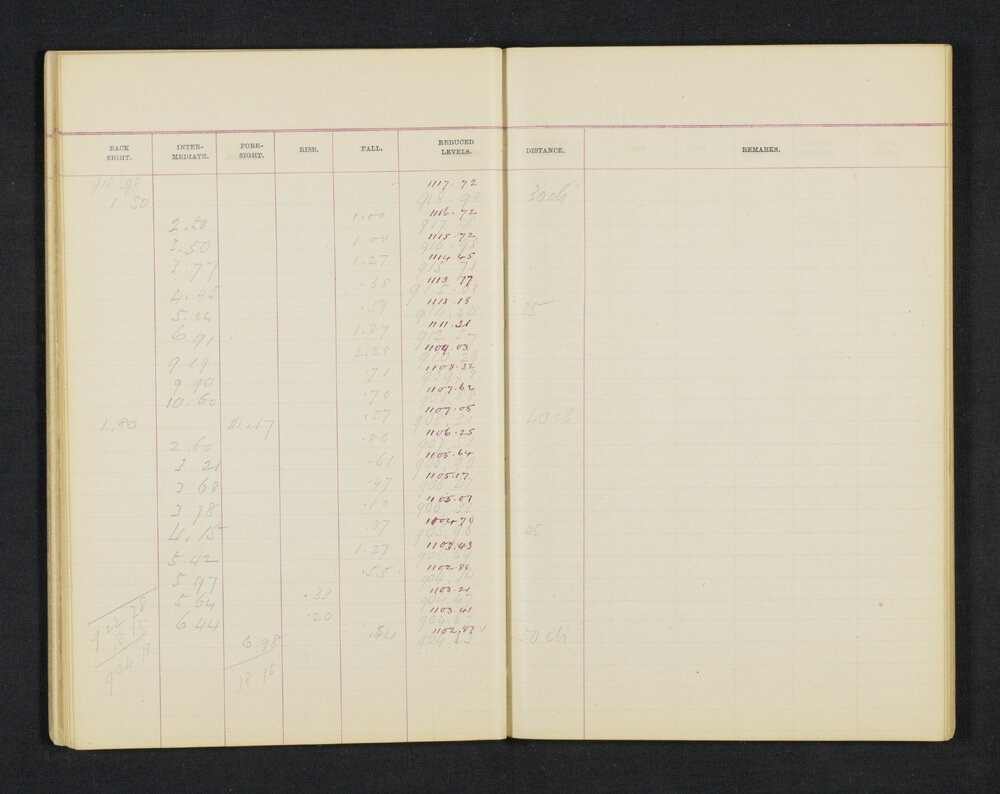 BACK SIGHT. INTER-MEDIATE. FORE-SIGHT. RISE. FALL. REDUCED LEVELS. DISTANCE. REMARKS.
918.98 1117.72
1.50 918 98 30ch
1116.72
2.50 1.00
3.50 1.00 1115.72
3.77 1.27 1114.45
4.45 .68 1113.77
5.04 .59 1113.18 35
6.91 1.87 1111.31
9 19 2.28 1109.03
9 90 .71 1108.32
10.60 .70 1107.62
1.80 11.17 .57 1107.05 40 ch
2.60 .80 1106.25
3 21 .61 1105.64
3 68 .47 1105.17
3.78 .10 1105.07
4.15 .37 1104.70 45
5.42 1.27 1103.43
5.97 .55 1102.88
5.64 .33 1103.21
6.44 .20 1103.41
922 28 6.98 .54 1102.87
18 15 904 13 50 ch
904 13 18 15